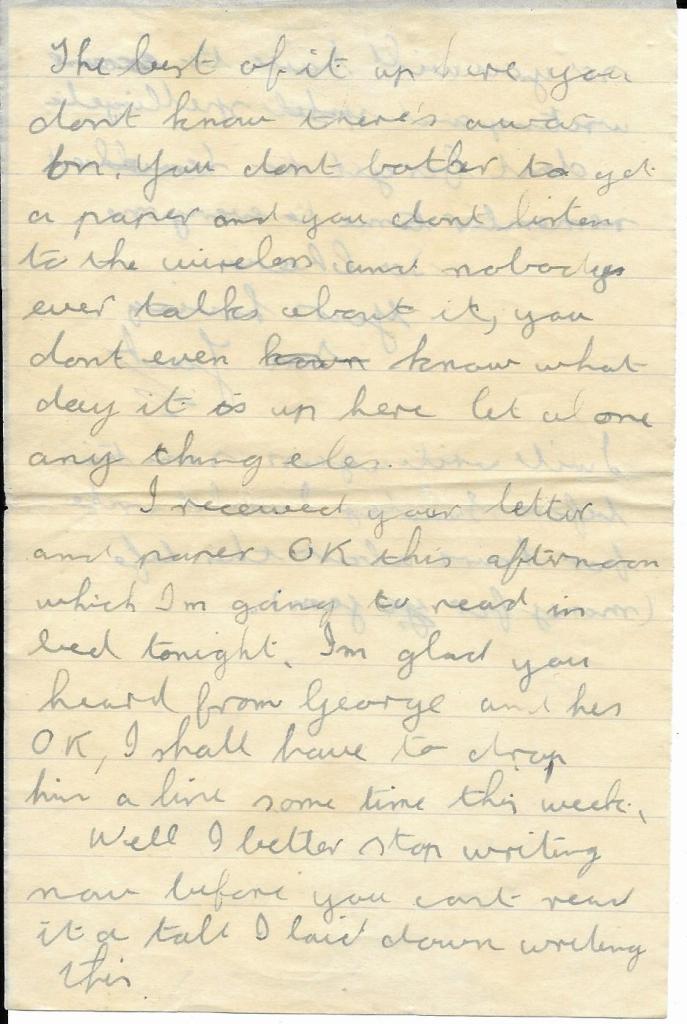 The best of it up here you
dont know there's a war
on. You dont bother to get
a paper and you dont listen
to the wireless and nobodys
ever talks about it, you
dont even know what
day it is up here let alone
any thing eles.
I received your letter
and paper OK this afternoon
which I'm going to read in
bed tonight. I'm glad you
heard from George and hes
OK, I shall have to drop
him a line some time this week.
Well I better stop writing
now before you cant read
it a tall I laid down writing
this